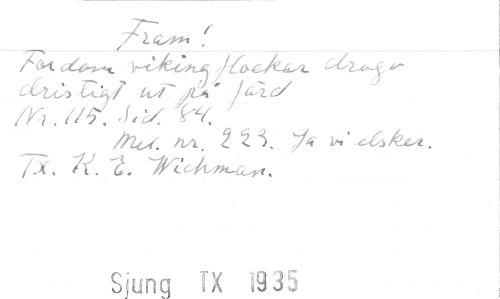 Fram!
Fordom vikingflockar drogo
dristigt ut på färd
Nr. 115. Sid. 84.
Mel. nr. 223. Ja vi elsker.
Tx. K. E. Wichman.
Sjung TX 1935